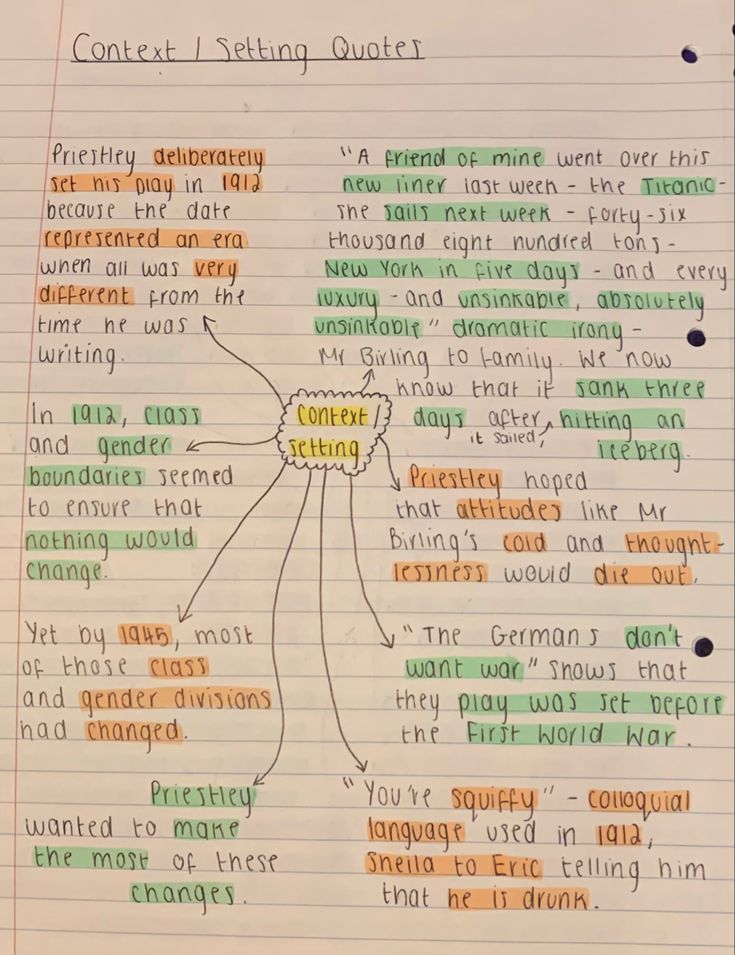 Context / Setting Quotes
Priestley deliberately
set his play in 1912
because the date
represented an era
when all was very
different from the
time he was
writing.
"A friend of mine went over this
new liner last week - the Titanic -
she sails next week - forty-six
thousand eight hundred tons -
New York in five days - and every
luxury - and unsinkable, absolutely
unsinkable" dramatic irony -
Mr Birling to family. We now
know that it sank three
days after it sailed, hitting an
iceberg.
context/
setting
In 1912, class
and gender
boundaries seemed
to ensure that
nothing would
change.
Priestley hoped
that attitudes like Mr
Birling's cold and thought-
lessness would die out.
Yet by 1945, most
of those class
and gender divisions
had changed.
"The Germans don't
want war" shows that
they play was set before
the First World War.
Priestley
wanted to make
the most of these
changes.
"You're squiffy" - colloquial
language used in 1912,
Sheila to Eric telling him
that he is drunk.